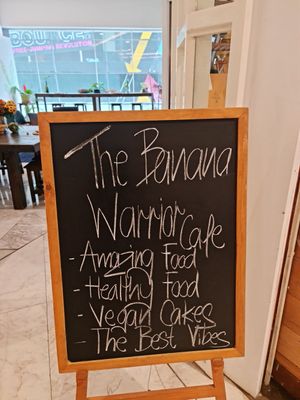 The Banana
Warrior Cafe
- Amazing Food
- Healthy Food
- Vegan Cakes
- The Best Vibes